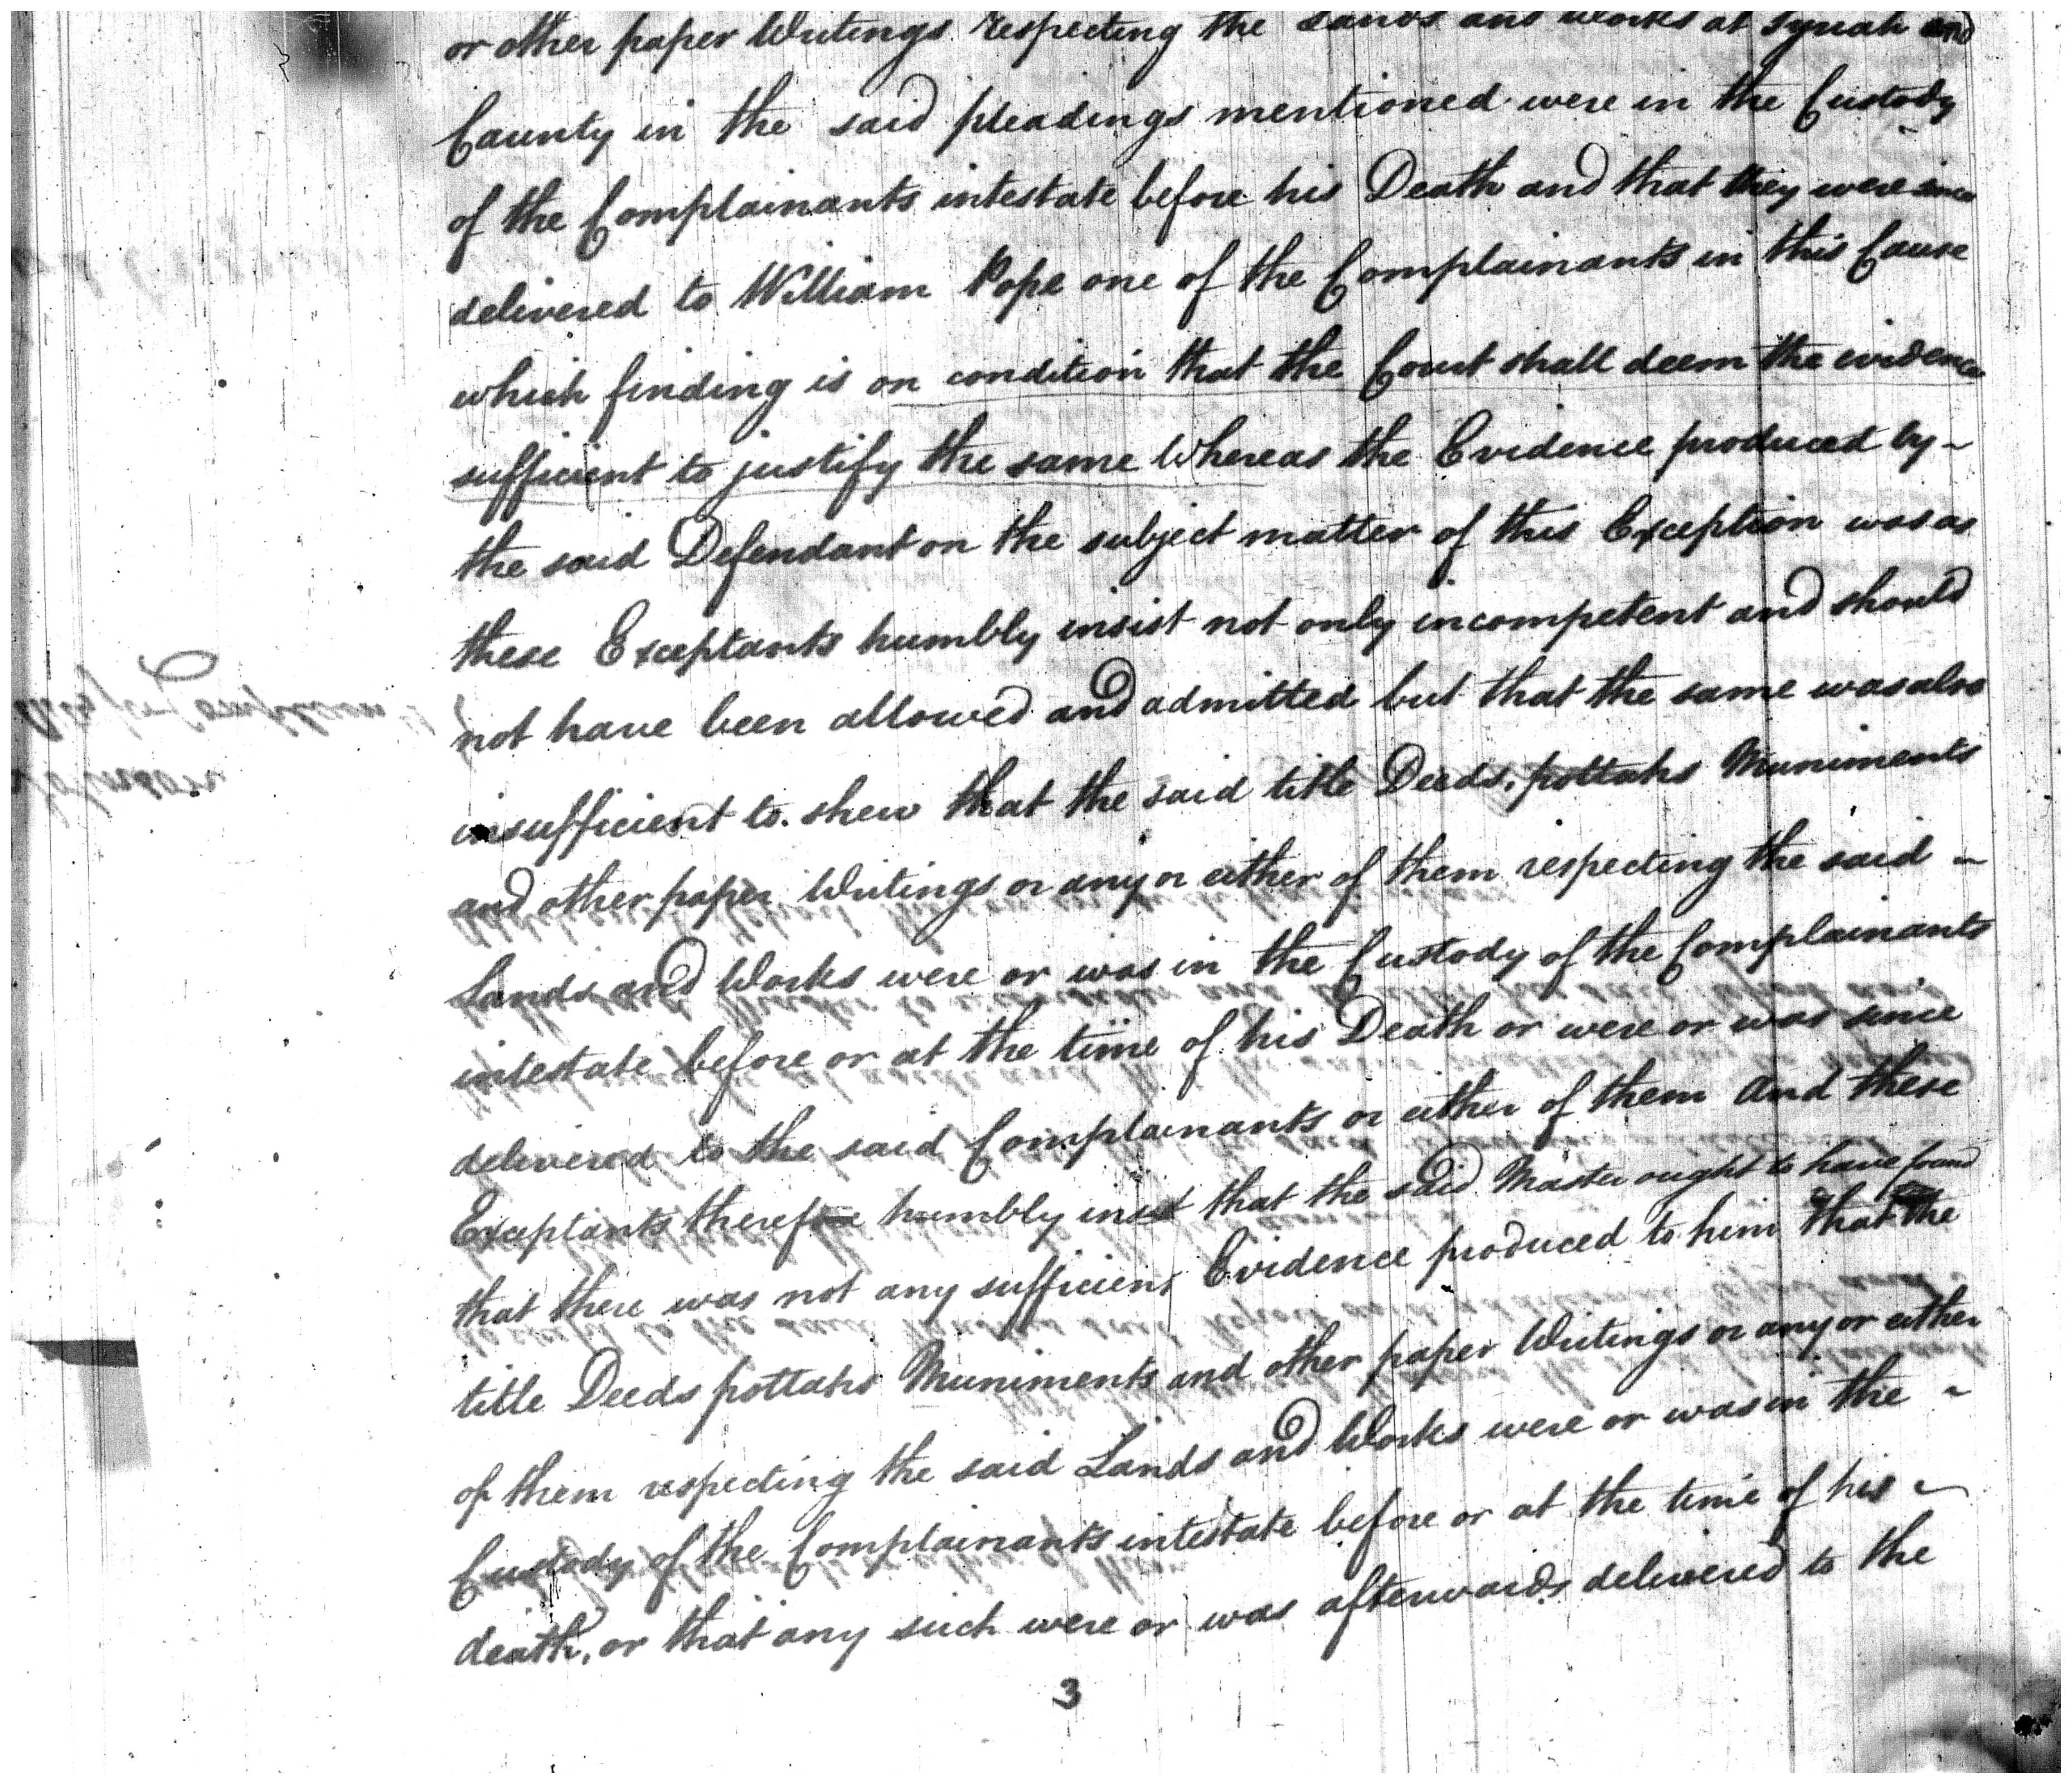 or other paper Writings respecting the Lands and Works at and
Caunty in the said pleadings mentioned were in the Custody
of the Complainants intestate before his Death and that they were since
delivered to William Pope one of the Complainants in this Cause
which finding is on condition that the Court shall deem the evidence
sufficient to justify the same Whereas the Evidence produced by ~
the said Defendant on the subject matter of this Exception was as
these Exceptants humbly insist not only incompetent and should
not have been allowed and admitted but that the same was also
insufficient to shew that the said title Deeds, pottahs Muniments
and other paper Writings or any or either of them respecting the said ~
Lands and Works were or was in the Custody of the Complainants
intestate before or at the time of his Death or were or was since
delivered to the said Complainants or either of them And these
Exceptants therefore humbly insist that the said Master ought to have found
that there was not any sufficient Evidence produced to him that the
title Deeds pottahs Muniments and other paper Writings or any or either
of them respecting the said Lands and Works were or was in the ~
Custody of the Complainants intestate before or at the time of his ~
death, or that any such were or was afterwards delivered to the
3